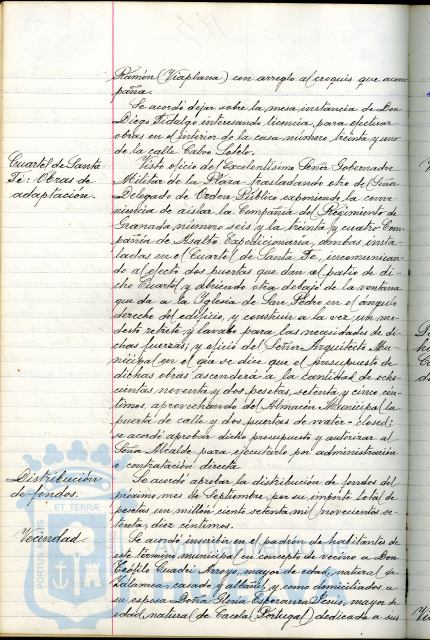 Ramón (Viaplana) con arreglo al croquis que acom-
paña.
Se acordó dejar sobre la mesa, instancia de Don
Diego Fidalgo interesando licencia, para efectuar
obras en el interior de la casa número treinta y uno
de la calle Calvo Sotelo.
Cuartel de Santa
Fé: Obras de
adaptación.
Visto oficio del Excelentísimo Señor Gobernador
Militar de la Plaza trasladando otro del Señor
Delegado de Orden Público exponiendo la conve-
niencia de aislar la Compañía del Regimiento de
Granada número seis y la treinta y cuatro Com-
pañía de Asalto Expedicionaria, ambas insta-
ladas en el Cuartel de Santa Fe, incomunican-
do al efecto dos puertas que dan al patio de di-
cho Cuartel y abriendo otra debajo de la ventana
que da a la Iglesia de San Pedro en el ángulo
derecho del edificio, y construir a la vez un mo-
desto retrete y lavabo para las necesidades de di-
chas fuerzas; y oficio del Señor Arquitecto Mu-
nicipal en el que se dice que el presupuesto de
dichas obras ascenderá a la cantidad de ocho-
cientas noventa y dos pesetas, setenta y cinco cén-
timos aprovechando del Almacén Municipal la
puerta de calle y dos puertas de water-closed;
se acordó aprobar dicho presupuesto y autorizar al
Señor Alcalde para ejecutarlo por administración
o contratación directa.
Distribución
de fondos.
Se acordó aprobar la distribución de fondos del
próximo mes de Septiembre, por su importe total de
pesetas un millón ciento setenta mil novecientas se-
tenta, diez céntimos.
Vecindad.
Se acordó inscribir en el padrón de habitantes de
este término municipal en concepto de vecino a Don
Teófilo Arroyo, mayor de edad, natural de
Zalamea, casado, y albañil y como domiciliados a
su esposa Doña Gloria Esperanza Jesús, mayor de
edad, natural de Cacela (Portugal) dedicada a sus
PORTUS MARIS
ET TERRAE